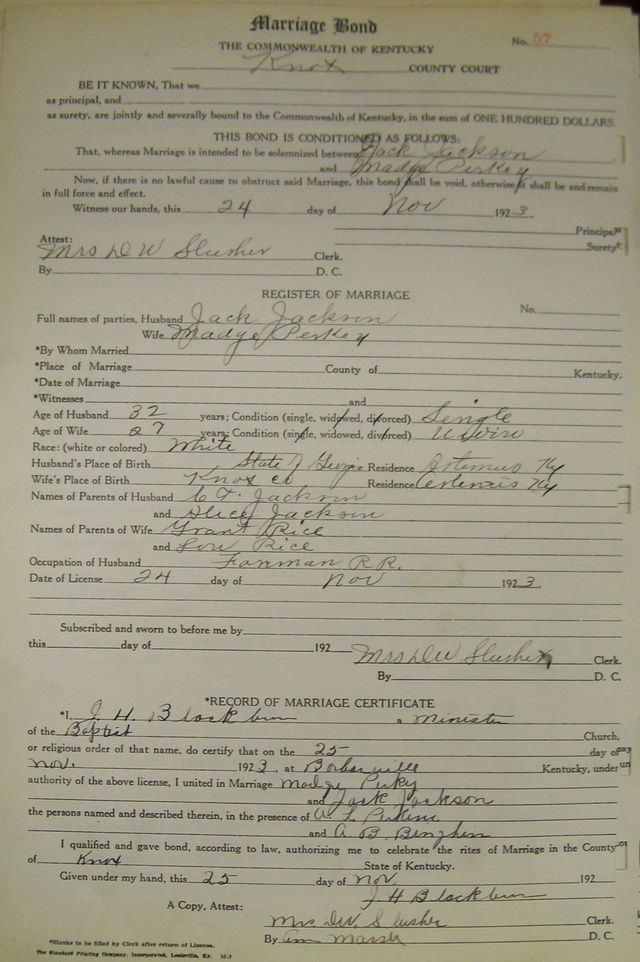 Marriage Bond
No. 57
THE COMMONWEALTH OF KENTUCKY
Knox COUNTY COURT
BE IT KNOWN, That we
as principal, and
as surety, are jointly and severally bound to the Commonwealth of Kentucky, in the sum of ONE HUNDRED DOLLARS.
THIS BOND IS CONDITIONED AS FOLLOWS:
That, whereas Marriage is intended to be solemnized between Jack Jackson
and Madge Perkey
Now, if there is no lawful cause to obstruct said Marriage, this bond shall be void, otherwise it shall be and remain
in full force and effect.
Witness our hands, this 24 day of Nov 1923.
Principal
Surety
Attest:
Mrs D W Slusher Clerk.
By D. C.
REGISTER OF MARRIAGE
Full names of parties, Husband Jack Jackson No.
Wife Madge Perkey
*By Whom Married
*Place of Marriage County of Kentucky.
*Date of Marriage
*Witnesses and
Age of Husband 32 years; Condition (single, widowed, divorced) Single
Age of Wife 27 years; Condition (single, widowed, divorced)
Race: (white or colored) White
Husband's Place of Birth State of Georgia Residence Artemus Ky
Wife's Place of Birth Knox co Residence Artemus Ky
Names of Parents of Husband C. F. Jackson
and Alice Jackson
Names of Parents of Wife Grant Rice
and Lou Rice
Occupation of Husband Forman R.R.
Date of License 24 day of Nov 1923.
Subscribed and sworn to before me by
this day of 192
Mrs D W Slusher Clerk.
By D. C.
*RECORD OF MARRIAGE CERTIFICATE
*I, J. H. Blackburn a Minister
of the Baptist Church,
or religious order of that name, do certify that on the 25 day of
Nov. 1923, at Barbourville Kentucky, under
authority of the above license, I united in Marriage Madge Perky
and Jack Jackson
the persons named and described therein, in the presence of A. L. Perkins
and A. B. Binghin
I qualified and gave bond, according to law, authorizing me to celebrate the rites of Marriage in the County
of Knox State of Kentucky.
Given under my hand, this 25 day of Nov. 192
J H Blackburn
A Copy, Attest:
Mrs. D.W. Slusher Clerk.
By Marsh D. C.
*Blanks to be filled by Clerk after return of License.
The Standard Printing Company, Incorporated, Louisville, Ky.